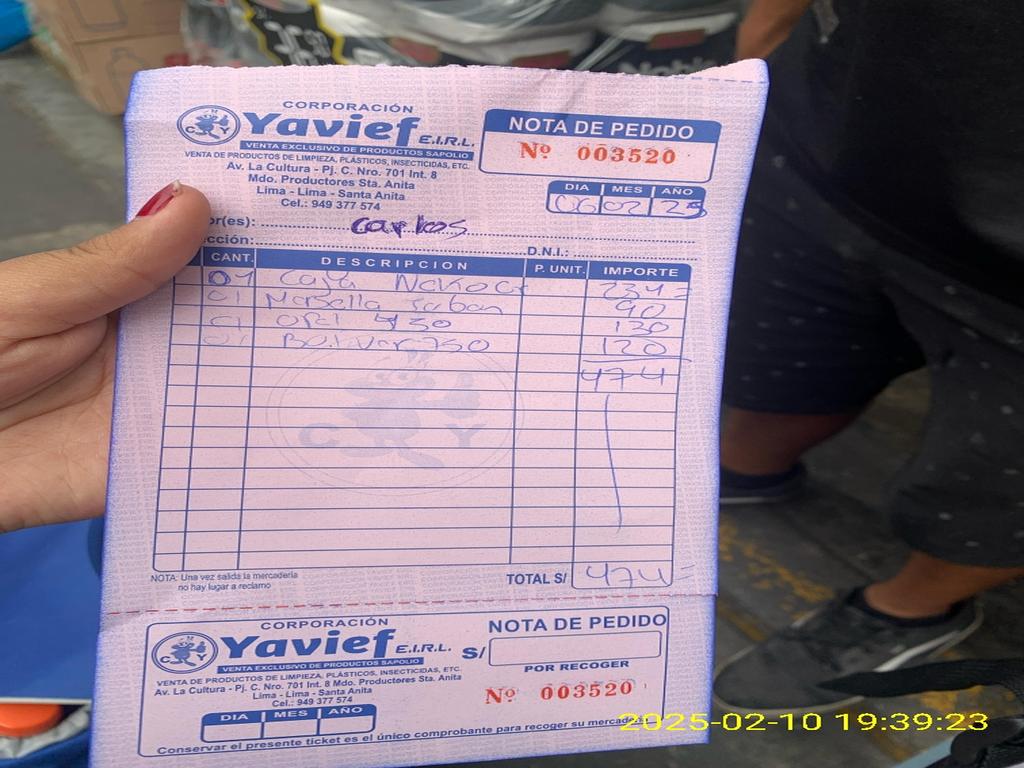 CORPORACIÓN
Yavief E.I.R.L.
VENTA EXCLUSIVO DE PRODUCTOS SAPOLIO
VENTA DE PRODUCTOS DE LIMPIEZA, PLÁSTICOS, INSECTICIDAS, ETC.
Av. La Cultura - Pj. C. Nro. 701 Int. 8
Mdo. Productores Sta. Anita
Lima - Lima - Santa Anita
Cel.: 949 377 574
NOTA DE PEDIDO
Nº 003520
DIA MES AÑO
06 02 25
or(es): Carlos
cción: D.N.I.:
CANT. DESCRIPCION P. UNIT. IMPORTE
01 Caja 234
01 Marsella 90
01 130
01 Bolivar 750 120
474
C Y
NOTA: Una vez salida la mercaderia
no hay lugar a reclamo
TOTAL S/ 474
CORPORACIÓN
Yavief E.I.R.L.
VENTA EXCLUSIVO DE PRODUCTOS SAPOLIO
VENTA DE PRODUCTOS DE LIMPIEZA, PLÁSTICOS, INSECTICIDAS, ETC.
Av. La Cultura - Pj. C. Nro. 701 Int. 8 Mdo. Productores Sta. Anita
Lima - Lima - Santa Anita
Cel.: 949 377 574
DIA MES AÑO
NOTA DE PEDIDO
S/
POR RECOGER
Nº 003520
Conservar el presente ticket es el único comprobante para recoger su
2025-02-10 19:39:23